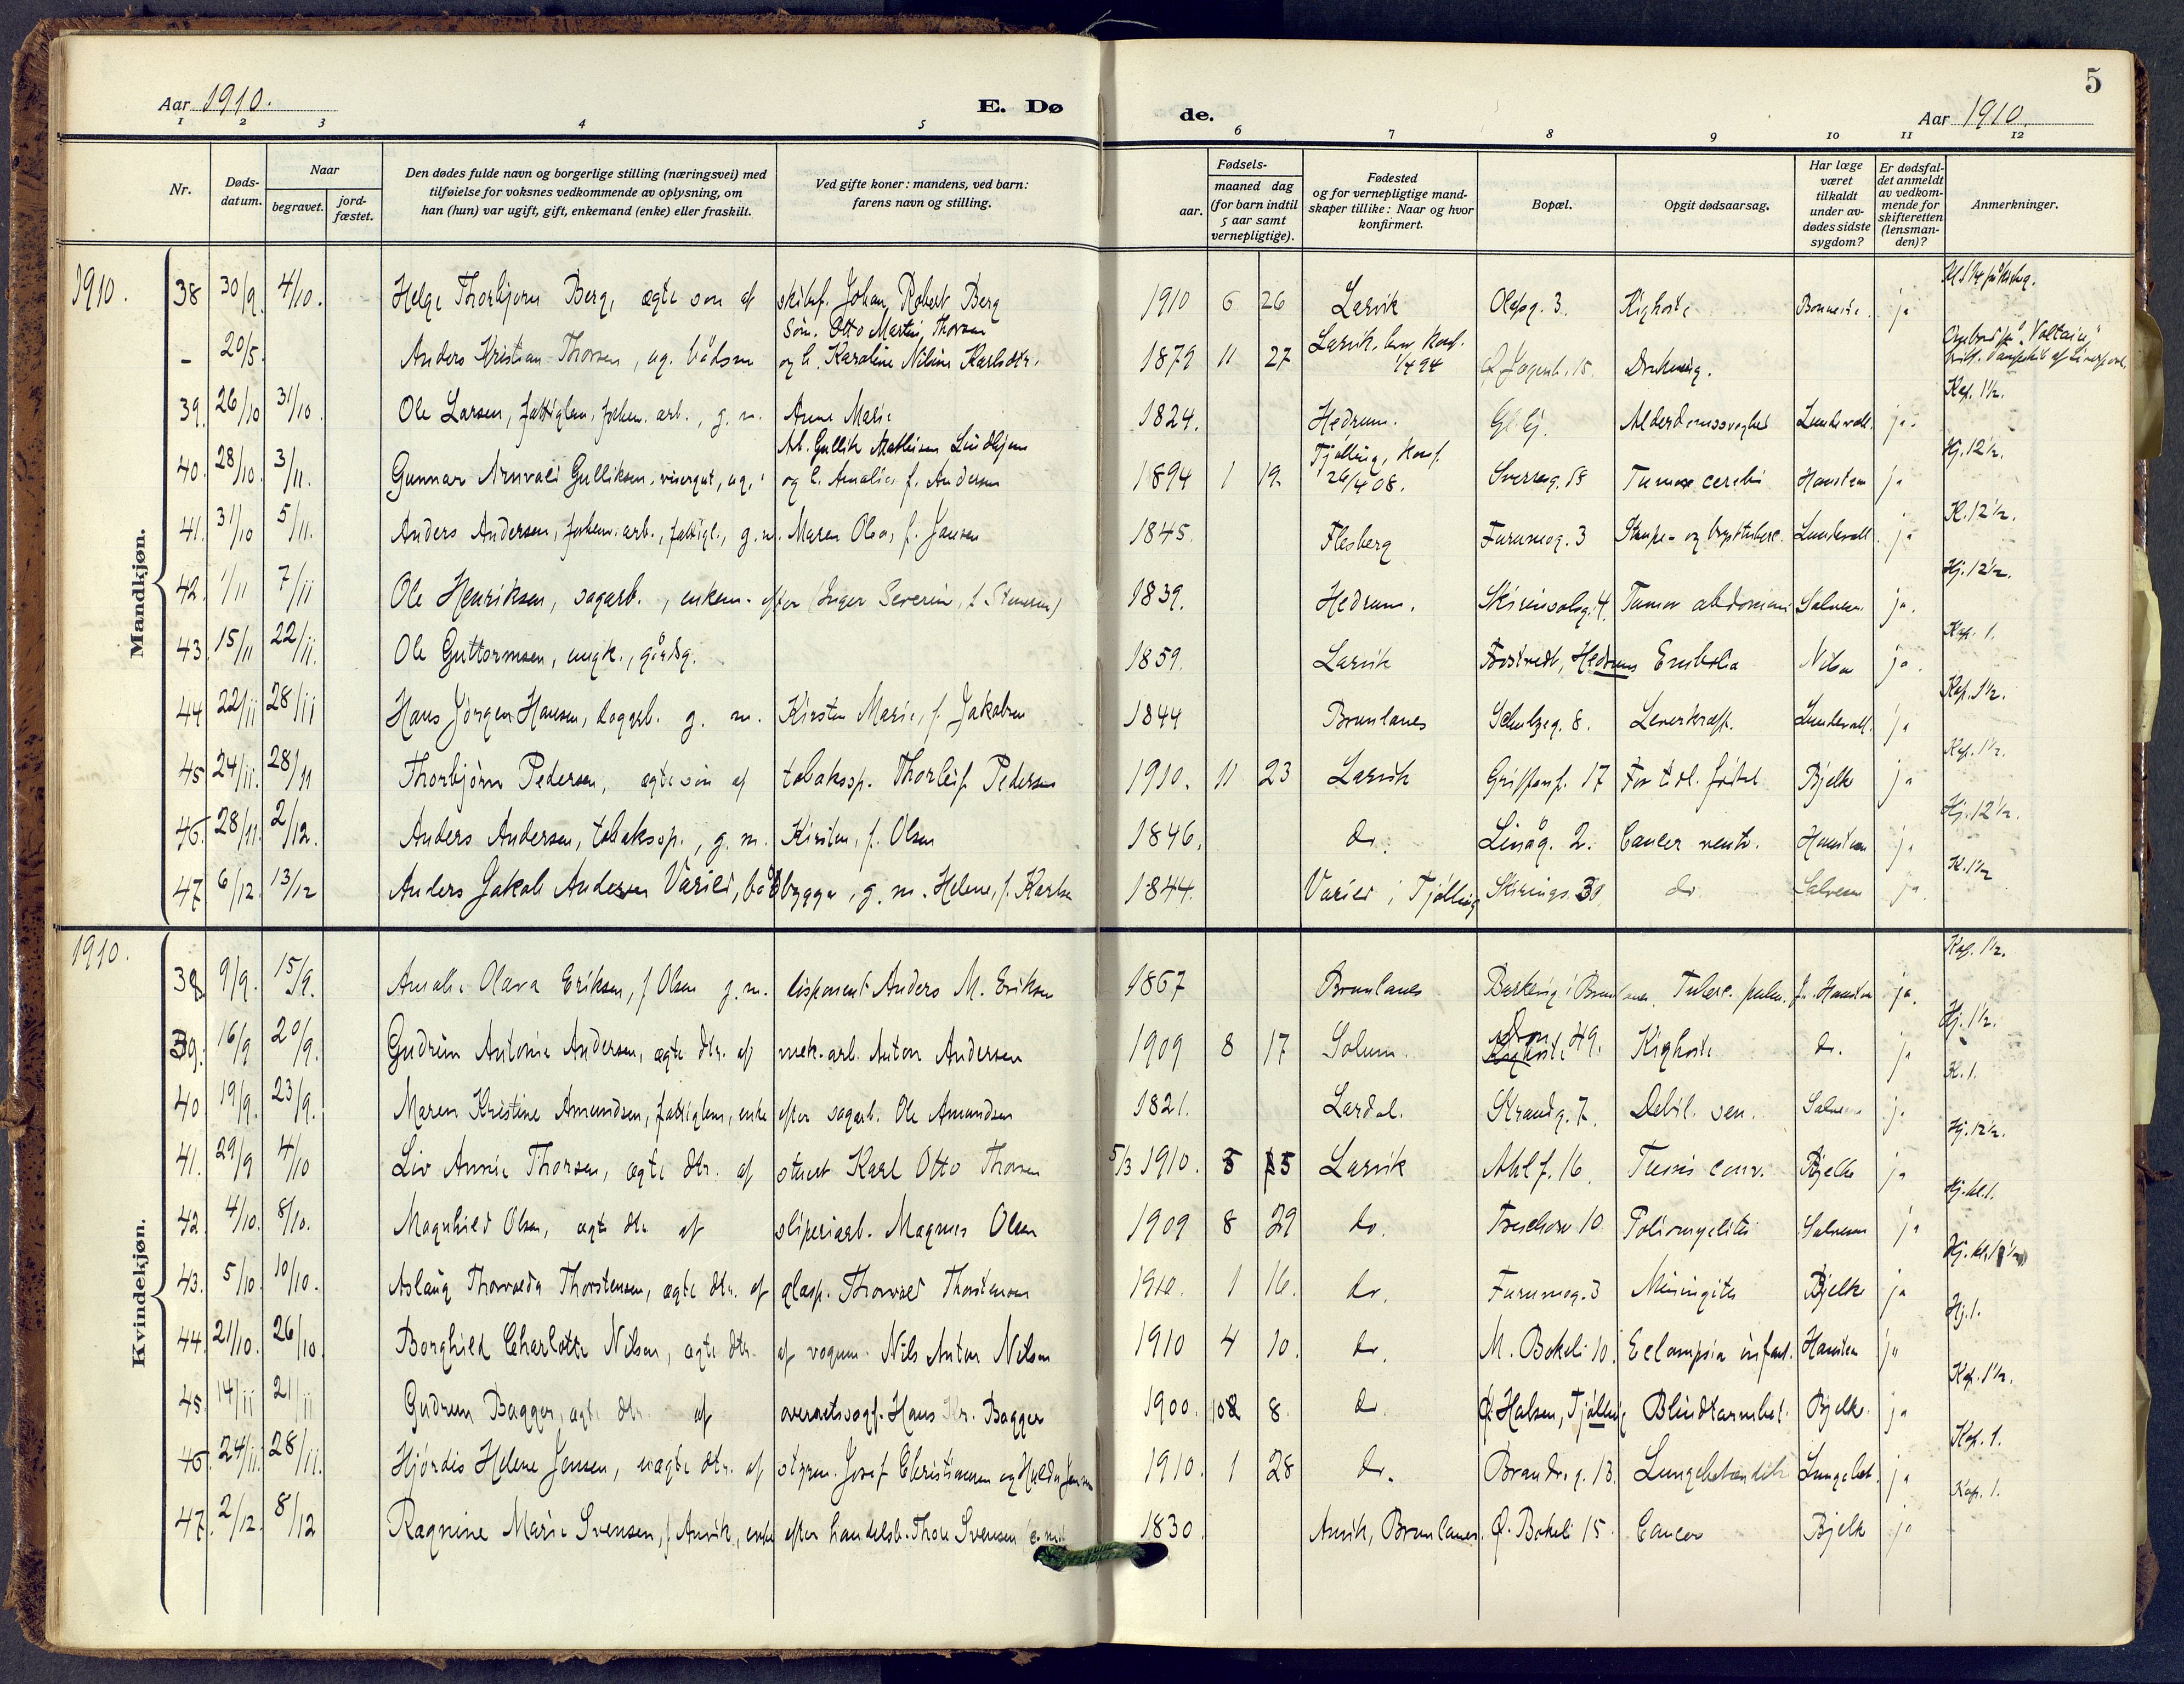 5
Aar 1910.
E. Dø
de.
Aar 1910.
1 2 3 4 5 6 7 8 9 10 11 12
Nr.
Døds-
datum.
Naar
begravet.
jord-
fæstet.
Den dødes fulde navn og borgerlige stilling (næringsvei) med
tilføielse for voksnes vedkommende av oplysning, om
han (hun) var ugift, gift, enkemand (enke) eller fraskilt.
Ved gifte koner: mandens, ved barn:
farens navn og stilling.
Fødsels-
aar.
maaned dag
(for barn indtil
5 aar samt
vernepligtige).
Fødested
og for vernepligtige mand-
skaper tillike: Naar og hvor
konfirmert.
Bopæl.
Opgit dødsaarsag.
Har læge
været
tilkaldt
under av-
dødes sidste
sygdom?
Er dødsfal-
det anmeldt
av vedkom-
mende for
skifteretten
(lensman-
den)?
Anmerkninger.
Mandkjøn.
1910. 38 30/9. 4/10. Helge Thorbjørn Berg, ægte søn af Johan Robert Berg 1910 6 26 Larvik Olafsg. 3. Kighoste ja
Søm. Otto Martin Thorsen
– 20/5 Anders Kristian Thorsen, ug. bådsm og h. Karoline Nilsine Karlsdtr. 1879 11 27 Larvik, konf. 1/4 94 Jegersb. 15. Drukning. "Voltaire"
39. 26/10 31/10. Ole Larsen, fattiglem, forhen. arb., g. m. Anne Marie 1824. Hedrum. Alderdomssvaghed Lundevall. ja Kap. 1½.
Arb. Gullik Mathisen Lindhjem
40. 28/10. 3/11. Gunnar Arnvald Gulliksen, visergut, ug., og h. Amalie, f. Andersen 1894 1 19. Tjølling, konf. 26/4 08. Sverresg. 18 Tumor cerebri Hansteen ja Hj. 12½.
41. 31/10 5/11. Anders Andersen, forhenv. arb., fattigl., g. m. Maren Olea, f. Jansen 1845. Flesberg Furumog. 3 Strupe- og brysttuberc. Lundevall. ja K. 12½.
42. 1/11 7/11 Ole Henriksen, sagarb., enkem. efter (Inger Severine, f. ) 1839. Hedrum. Skiringsalsg. 4. Tumor abdominis Salvesen ja. Hj. 12½.
43. 15/11 22/11. Ole Guttormsen, ungk., gårdsg. 1859. Larvik Hedrum Embolia Nilsen ja. Kap. 1.
44 22/11 28/11 Hans Jørgen Hansen, dagarb. g. m. Kirsten Marie, f. Jakobsen 1844 Brunlanes Schulzeg. 8. Leverkræft. Lundevall. ja Kap. 1½.
45 24/11. 28/11 Thorbjørn Pedersen, ægte søn af tobakssp. Thorleif Pedersen 1910. 11 23 Larvik 17 For tidl. født Bjelke ja Kap. 1½.
46. 28/11. 2/12. Anders Andersen, tobakssp., g. m. Kirsten, f. Olsen 1846. do. Linåg. 2. Cancer ventr. Hansteen ja Hj. 12½.
47 6/12. 13/12 Anders Jakob Andersen Varild, bådbygger, g. m. Helene, f. Karlsen 1844. Varild i Tjølling Skirings. 30. do. Salvesen ja. K. 1½
Kvindekjøn.
1910. 38 9/9. 15/9. Amalie Olava Eriksen, f. Olsen g. m. disponent Anders M. Eriksen 1867 Brunlanes Barkevig i Brunlanes. Tuberc. pulm. Hansteen ja. Kap. 1½.
39. 16/9 20/9. Gudrun Antonie Andersen, ægte dtr. af mek. arb. Anton Andersen 1909 8 17 Solum. 49. Kighoste do. ja Hj. 1½.
40 19/9. 23/9. Maren Kristine Amundsen, fattiglem, enke efter sagarb. Ole Amundsen 1821. Lardal. Strandg. 7. Debil. sen. Salvesen ja K. 1.
41. 29/9 4/10 Liv Annie Thorsen, ægte dtr. af stuert Karl Otto Thorsen 5/3 1910. 5 15 Larvik Ahlf. 16. Tussis conv. Bjelke ja Hj. 12½.
42. 4/10. 8/10. Magnhild Olsen, ægte dtr. af sliperiarb. Magnus Olsen 1909 8 29 do. Treschow 10 Poliomyelitis Salvesen ja Hj. kl. 1.
43. 5/10. 10/10. Aslaug Thorvalda Thorstensen, ægte dtr. af glasp. Thorvald Thorstensen 1910. 1 16. do. Furumog. 3 Meningitis Bjelke ja Hj. kl. 1½
44. 21/10. 26/10 Borghild Charlotte Nilsen, ægte dtr. af vognm. Nils Anton Nilsen 1910 4 10. do. M. Bøkeli 10. Eclampsia infant. Hansteen ja Hj. 1.
45. 14/11 21/11 Gudrun Bagger, ægte dtr. af overretssagf. Hans Chr. Bagger 1900. 10 8. do. Ø. Halsen, Tjølling Blindtarmsbet. Bjelke ja Kap. 1½.
46. 24/11. 28/11. Hjørdis Helene Jensen, uægte dtr. af styrm. Josef Christiansen og Hulda Jensen 1910. 1 28 do. Brandvg. 13. Lungebetændelse Lungebet. ja Kap. 1.
47. 2/12. 8/12 Ragnine Marie Svensen, f. Anvik, enke efter handelsb. Thor Svensen 1830. Anvik, Brunlanes. Ø. Bøkeli 15. Cancer Bjelke ja Kap. 1.